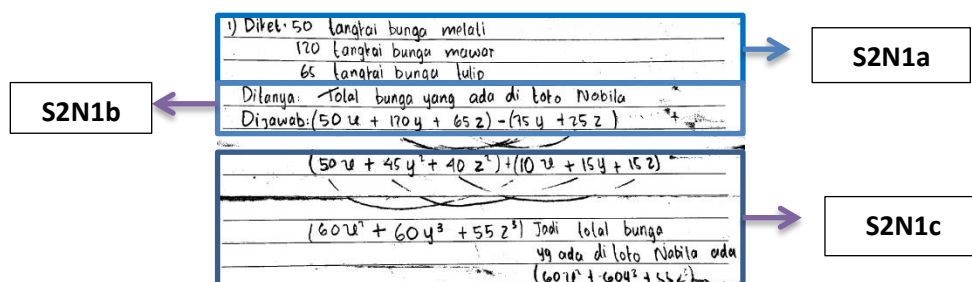 1) Diket: 50 tangkai bunga melati
120 tangkai bunga mawar
65 tangkai bunga tulip
S2N1a
S2N1b
Ditanya: Total bunga yang ada di toko Nabila
Dijawab: (50x + 120y + 65z) - (75y + 25z)
(50x + 45y² + 40z²) + (10x + 15y + 15z)
(60x² + 60y³ + 55z³) Jadi total bunga
yg ada di toko Nabila ada
(60x² + 60y³ + 55z³)
S2N1c